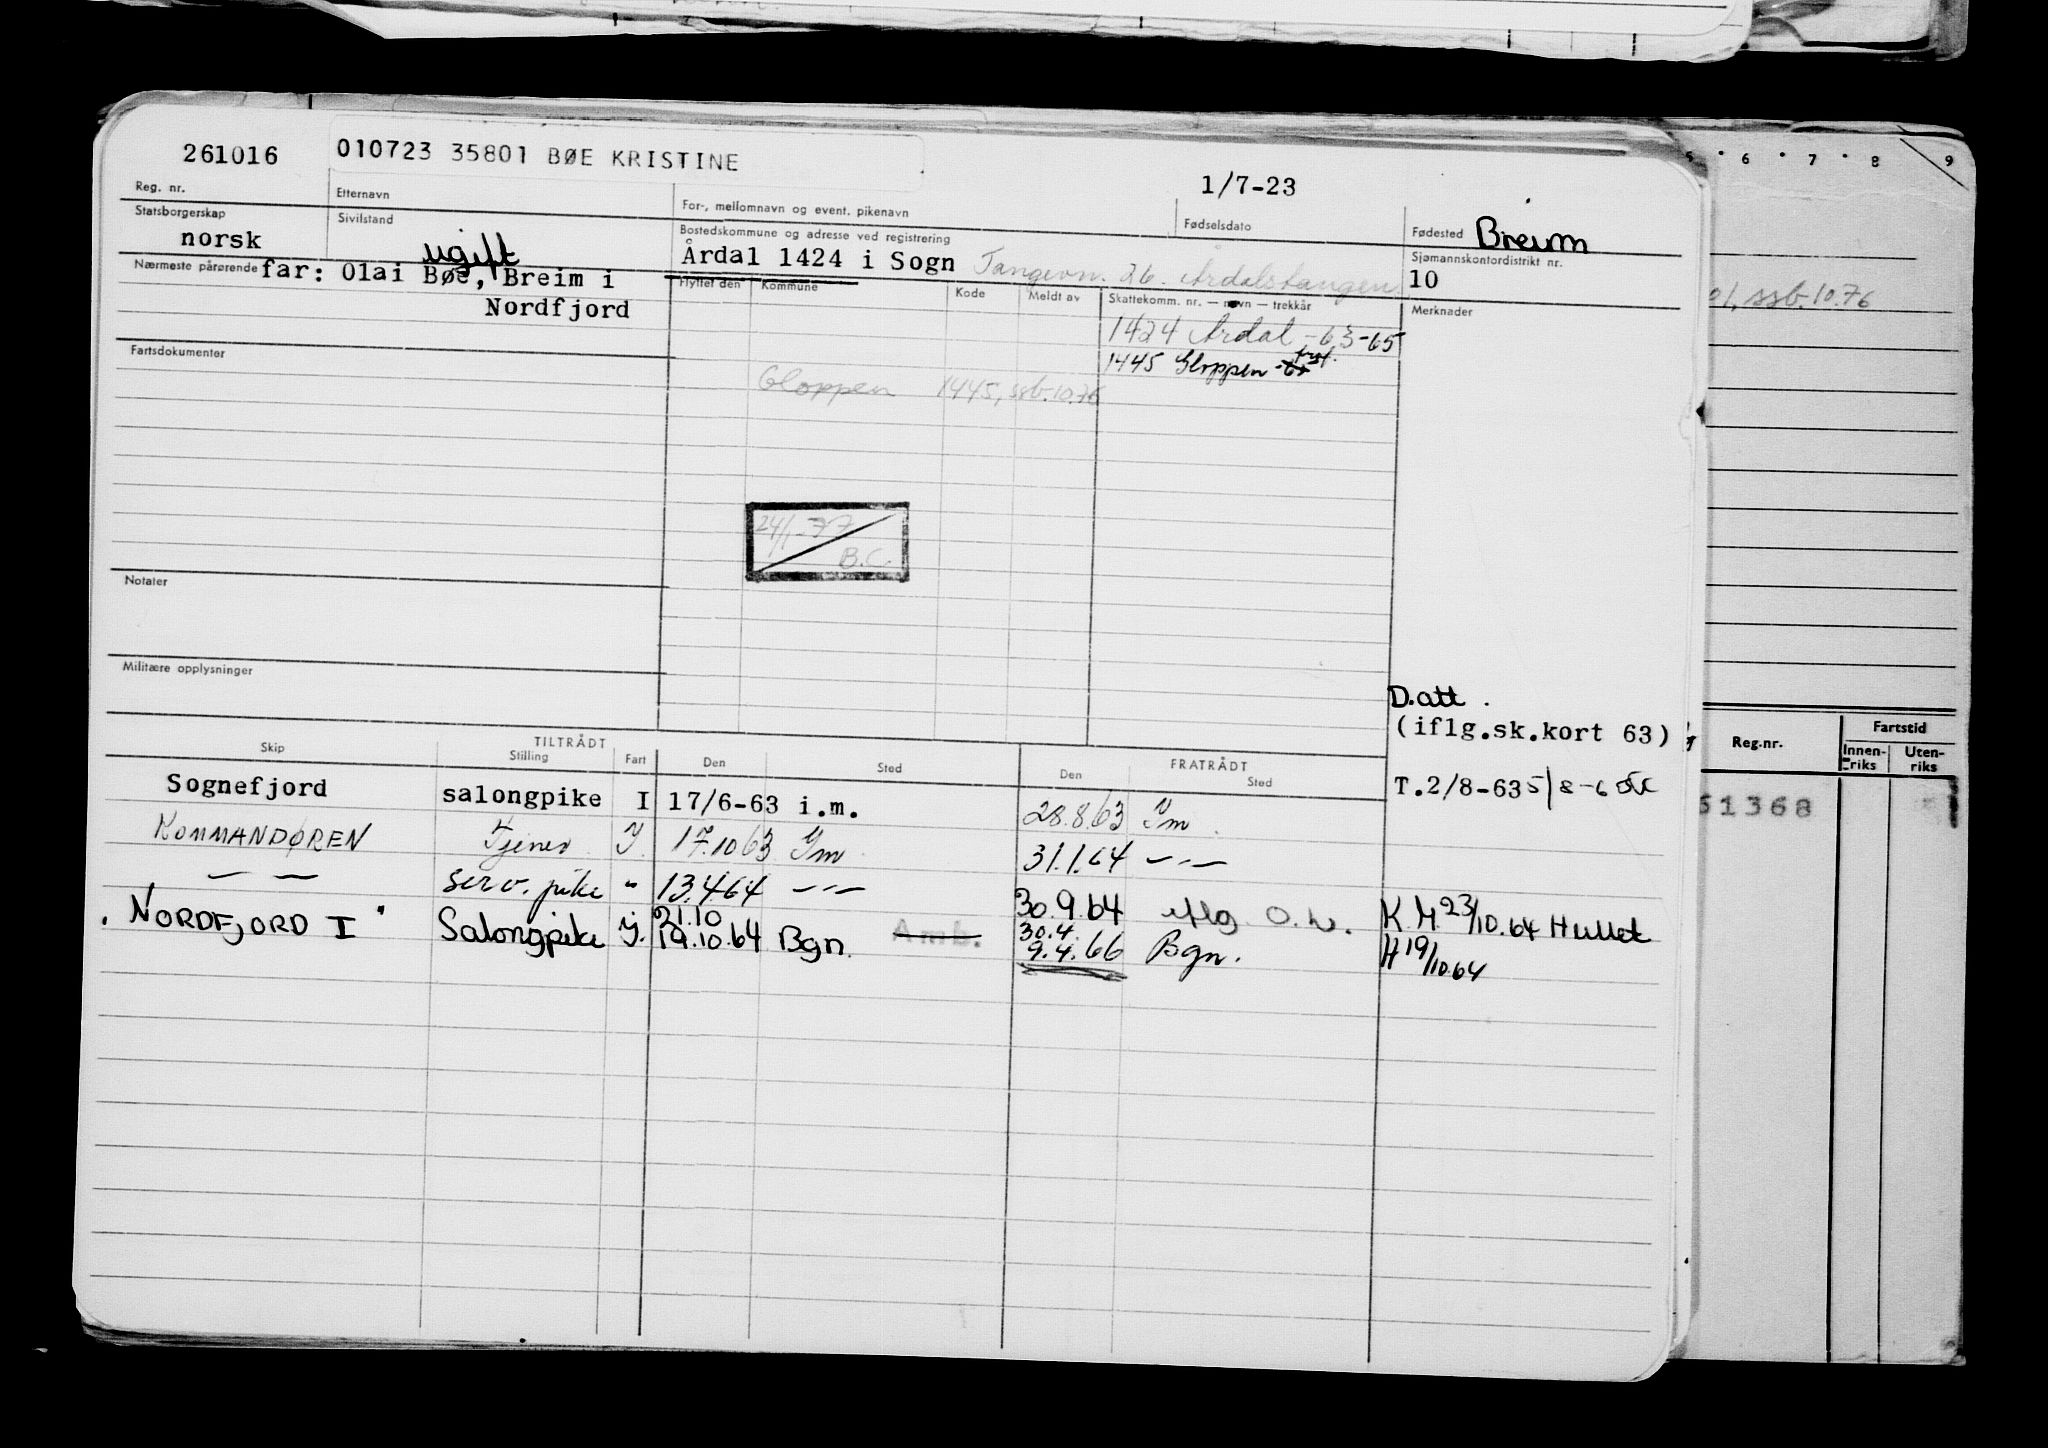 261016 010723 35801 BØE KRISTINE 1/7-23
Reg. nr. Etternavn For-, mellomnavn og event. pikenavn Fødselsdato Fødested Breim
Statsborgerskap Sivilstand Bostedskommune og adresse ved registrering Sjømannskontordistrikt nr.
norsk ugift Årdal 1424 i Sogn Tangevn. 26. Årdalstangen 10
Nærmeste pårørende far: Olai Bøe, Breim i
Nordfjord
Flyttet den Kommune Kode Meldt av Skattekomm. nr. — navn — trekkår Merknader
1424 Årdal -63-65
1445 Gloppen
Fartsdokumenter
Gloppen 1445, ssb.10.76
24/1-77
B.C.
Notater
Militære opplysninger
D.att.
(iflg.sk.kort 63)
T.2/8-63
TILTRÅDT FRATRÅDT
Skip Stilling Fart Den Sted Den Sted
Sognefjord salongpike I 17/6-63 i.m. 28.8.63 Im.
KOMMANDØREN Tjener J. 17.10 63 Im 31.1.64 — " —
— " — serv. pike " 13.4.64 — " — 30.9.64 iflg. O.L. K.M. 23/10.64 Hullet
"NORDFJORD I" Salongpike J. 21.10
19.10.64 Bgn. Amb. 30.4.
9.4.66 Bgn. H 19/10.64
5 6 7 8 9
01, ssb.10.76
Reg.nr. Fartstid
Innen-
riks Uten-
riks
51368